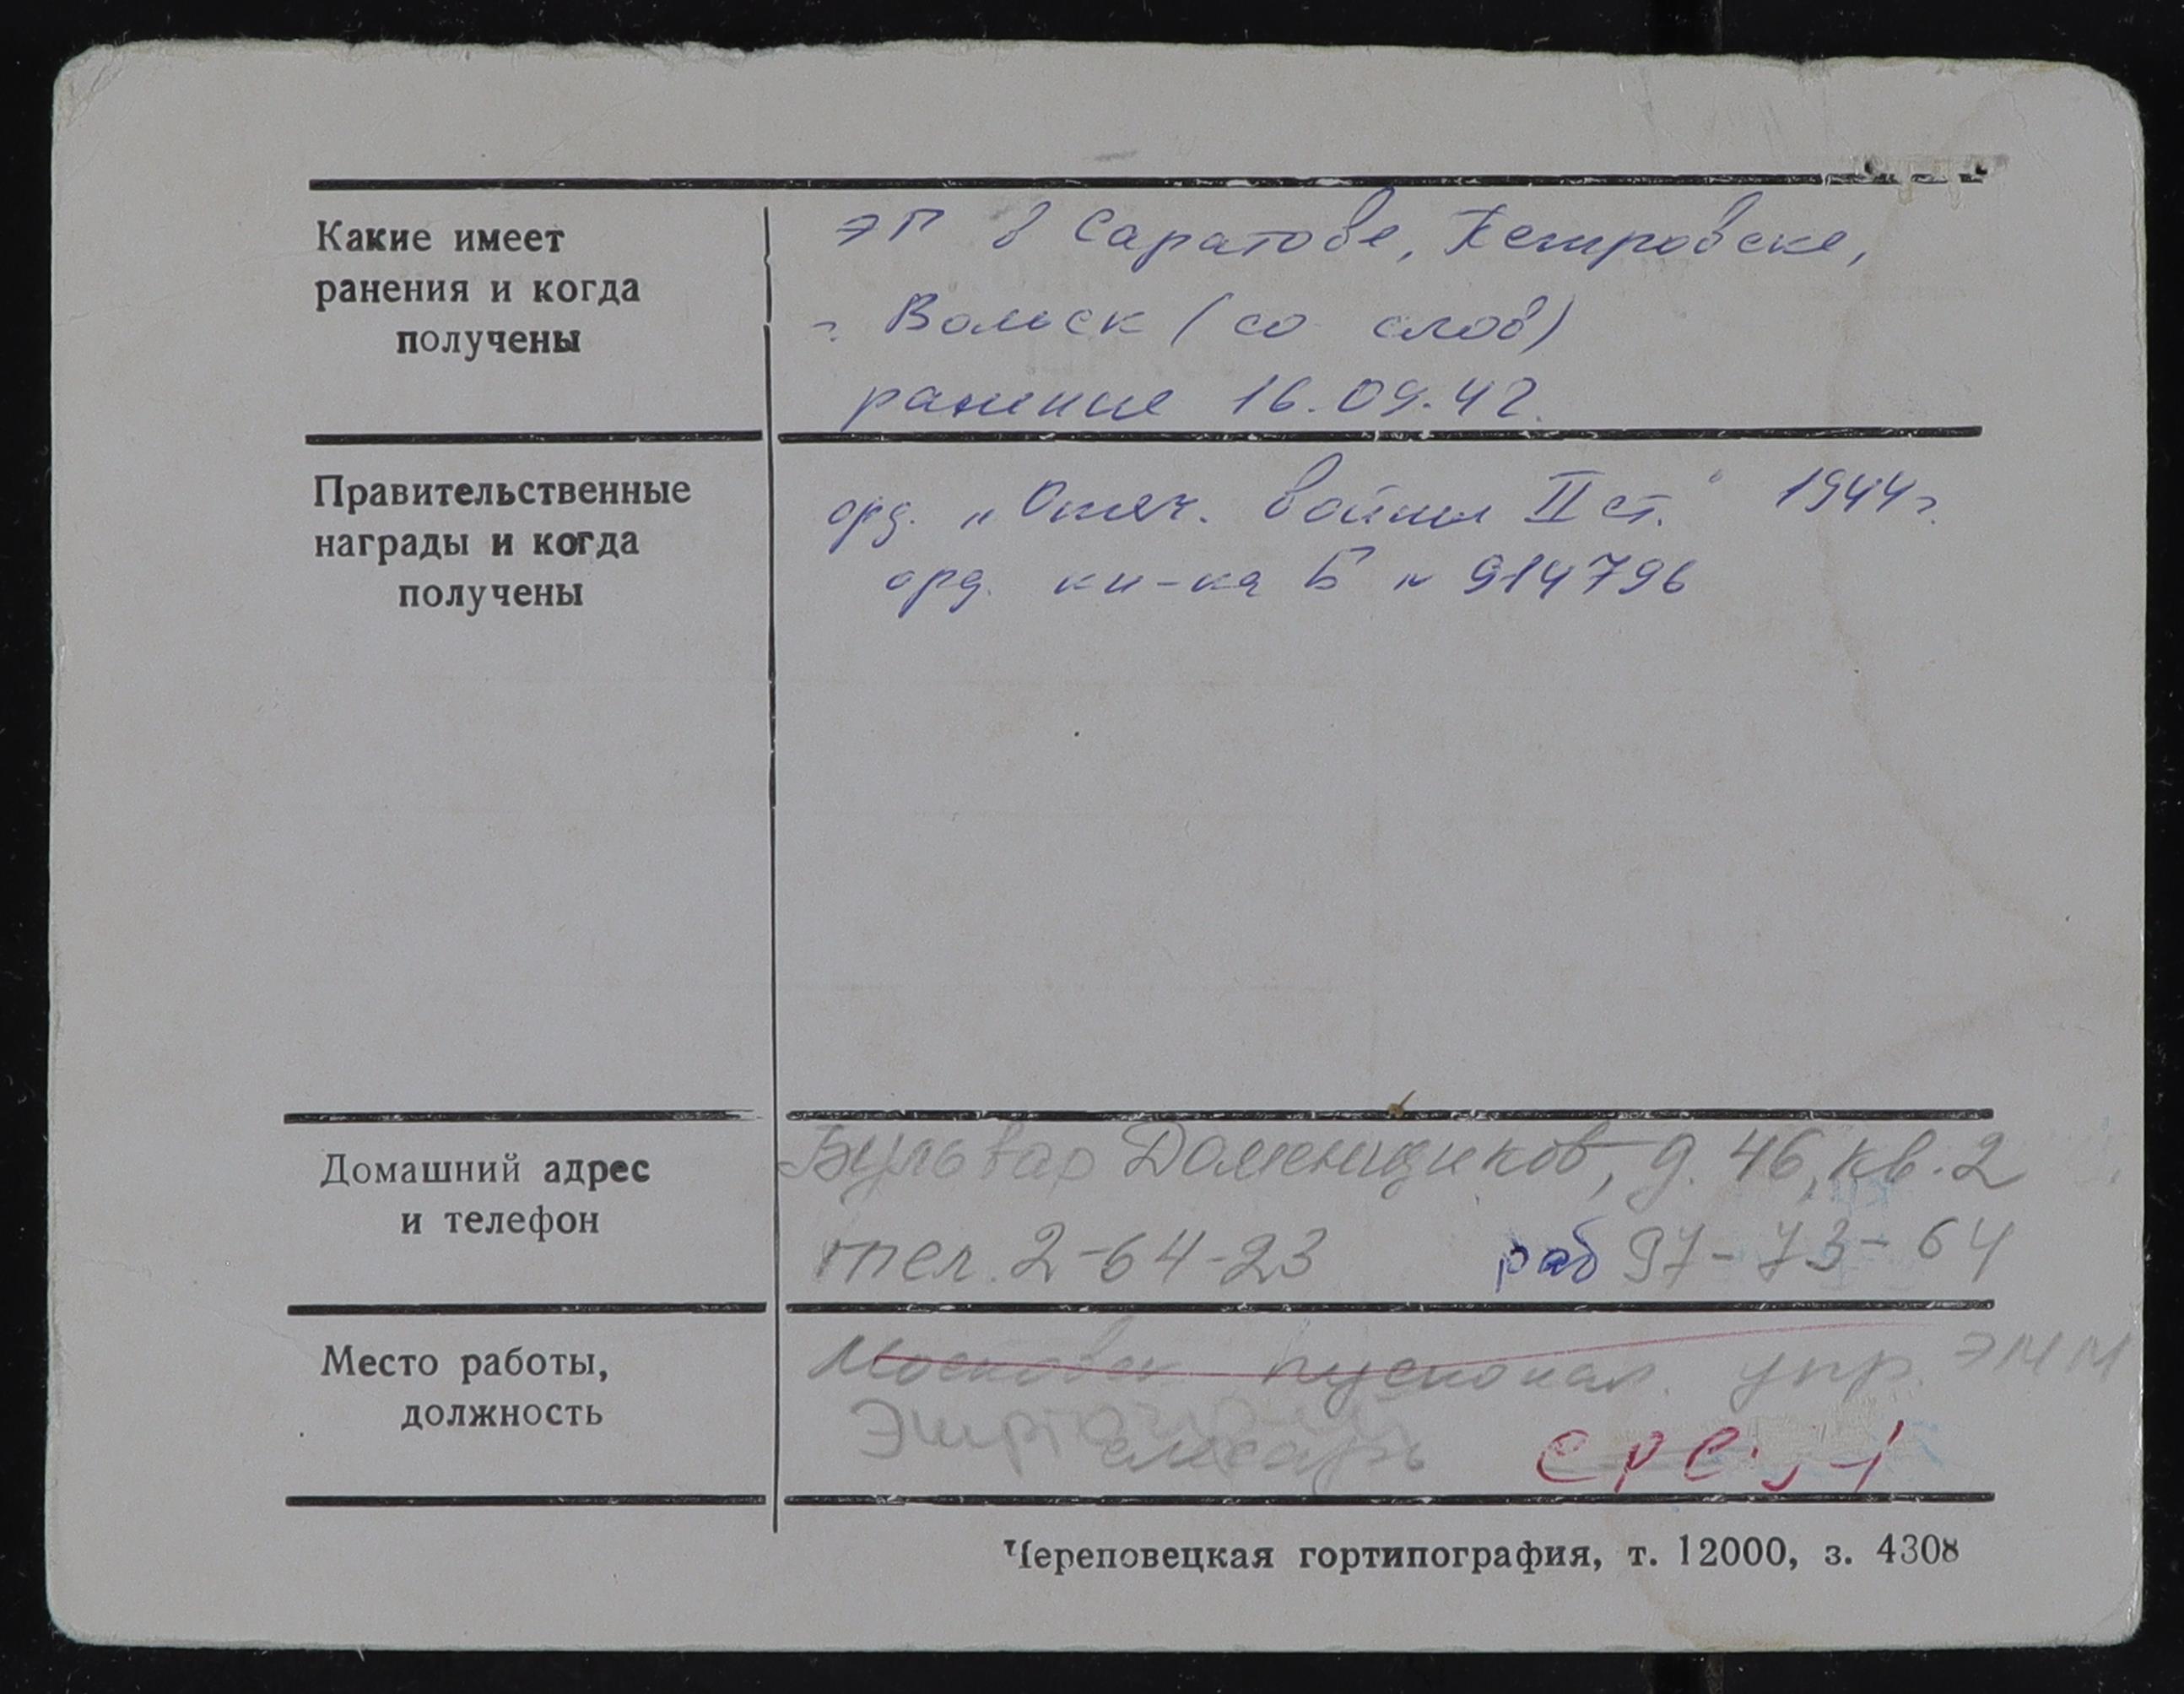 Какие имеет
ранения и когда
получены
ЭГ в Саратове, Петровске,
г. Вольск (со слов)
ранение 16.09.42.
Правительственные
награды и когда
получены
орд. „Отеч. войны II ст." 1944 г.
орд. кн-ка Б № 914796
Домашний адрес
и телефон
Бульвар Доменщиков, д. 46, кв. 2
тел. 2-64-23 раб 97-73-64
Место работы,
должность
Московск пусконал. упр. ЭММ
слесарь
Череповецкая гортипография, т. 12000, з. 4308